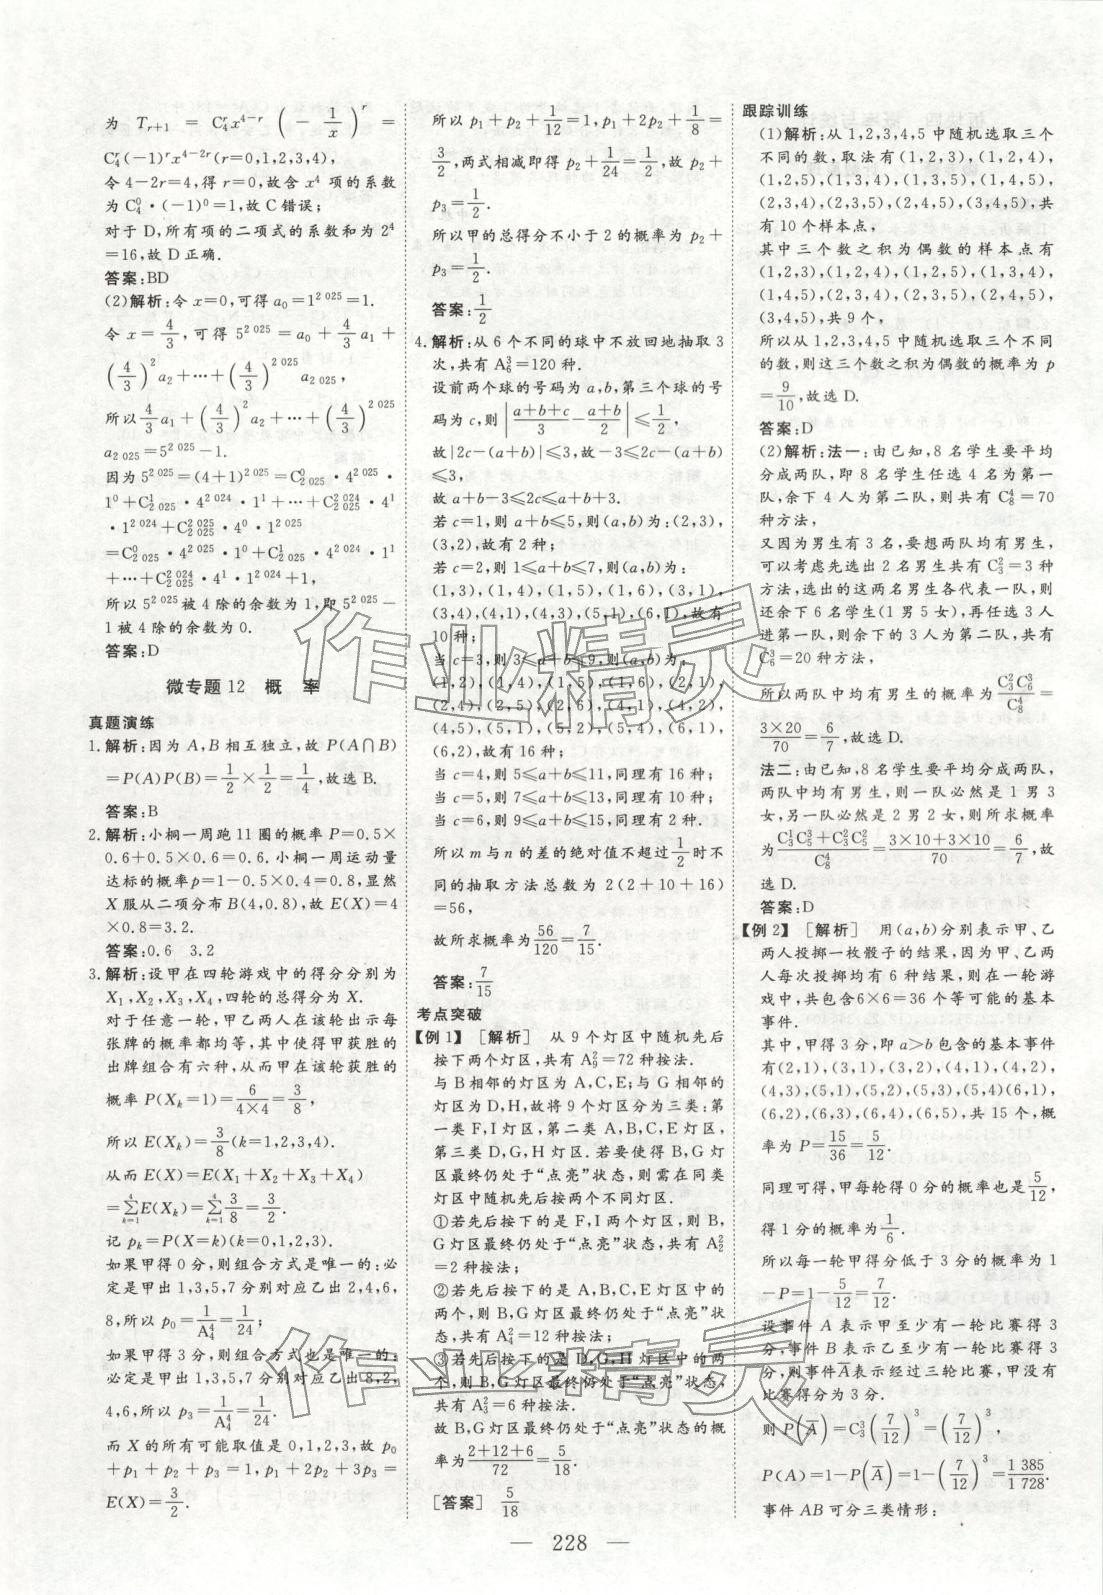 为 T_{r+1} = C_4^r x^{4-r} (-1/x)^r =
C_4^r(-1)^r x^{4-2r}(r=0,1,2,3,4),
令 4-2r=4,得 r=0,故含 x^4 项的系数
为 C_4^0·(-1)^0=1,故 C 错误;
对于 D,所有项的二项式的系数和为 2^4
=16,故 D 正确.
答案:BD
(2)解析:令 x=0,可得 a_0=1^{2 025}=1.
令 x=4/3,可得 5^{2 025}=a_0+4/3 a_1+
(4/3)^2 a_2+···+(4/3)^{2 025} a_{2 025},
所以 4/3 a_1+(4/3)^2 a_2+···+(4/3)^{2 025}
a_{2 025}=5^{2 025}-1.
因为 5^{2 025}=(4+1)^{2 025}=C_{2 025}^0·4^{2 025}·
1^0+C_{2 025}^1·4^{2 024}·1^1+···+C_{2 025}^{2 024}·4^1
·1^{2 024}+C_{2 025}^{2 025}·4^0·1^{2 025}
=C_{2 025}^0·4^{2 025}·1^0+C_{2 025}^1·4^{2 024}·1^1
+···+C_{2 025}^{2 024}·4^1·1^{2 024}+1,
所以 5^{2 025} 被 4 除的余数为 1,即 5^{2 025}-
1 被 4 除的余数为 0.
答案:D
微专题 12 概 率
真题演练
1. 解析:因为 A,B 相互独立,故 P(A∩B)
=P(A)P(B)=1/2×1/2=1/4,故选 B.
答案:B
2. 解析:小桐一周跑 11 圈的概率 P=0.5×
0.6+0.5×0.6=0.6.小桐一周运动量
达标的概率 p=1-0.5×0.4=0.8,显然
X 服从二项分布 B(4,0.8),故 E(X)=4
×0.8=3.2.
答案:0.6 3.2
3. 解析:设甲在四轮游戏中的得分分别为
X_1,X_2,X_3,X_4,四轮的总得分为 X.
对于任意一轮,甲乙两人在该轮出示每
张牌的概率都均等,其中使得甲获胜的
出牌组合有六种,从而甲在该轮获胜的
概率 P(X_k=1)=6/(4×4)=3/8,
所以 E(X_k)=3/8(k=1,2,3,4).
从而 E(X)=E(X_1+X_2+X_3+X_4)
=∑_{k=1}^4 E(X_k)=∑_{k=1}^4 3/8=3/2.
记 p_k=P(X=k)(k=0,1,2,3).
如果甲得 0 分,则组合方式是唯一的:必
定是甲出 1,3,5,7 分别对应乙出 2,4,6,
8,所以 p_0=1/A_4^4=1/24;
如果甲得 3 分,则组合方式也是唯一的:
必定是甲出 1,3,5,7 分别对应乙出 8,2,
4,6,所以 p_3=1/A_4^4=1/24.
而 X 的所有可能取值是 0,1,2,3,故 p_0
+p_1+p_2+p_3=1,p_1+2p_2+3p_3=
E(X)=3/2.
所以 p_1+p_2+1/12=1,p_1+2p_2+1/8=
3/2,两式相减即得 p_2+1/24=1/2,故 p_2+
p_3=1/2.
所以甲的总得分不小于 2 的概率为 p_2+
p_3=1/2.
答案:1/2
4. 解析:从 6 个不同的球中不放回地抽取 3
次,共有 A_6^3=120 种.
设前两个球的号码为 a,b,第三个球的号
码为 c,则 |(a+b+c)/3-(a+b)/2|≤1/2,
故|2c-(a+b)|≤3,故-3≤2c-(a+b)
≤3,
故 a+b-3≤2c≤a+b+3.
若 c=1,则 a+b≤5,则(a,b)为:(2,3),
(3,2),故有 2 种;
若 c=2,则 1≤a+b≤7,则(a,b)为:
(1,3),(1,4),(1,5),(1,6),(3,1),
(3,4),(4,1),(4,3),(5,1),(6,1),故有
10 种;
当 c=3,则 3≤a+b≤9,则(a,b)为:
(1,2),(1,4),(1,5),(1,6),(2,1),
(2,4),(2,5),(2,6),(4,1),(4,2),
(4,5),(5,1),(5,2),(5,4),(6,1),
(6,2),故有 16 种;
当 c=4,则 5≤a+b≤11,同理有 16 种;
当 c=5,则 7≤a+b≤13,同理有 10 种;
当 c=6,则 9≤a+b≤15,同理有 2 种.
所以 m 与 n 的差的绝对值不超过 1/2 时不
同的抽取方法总数为 2(2+10+16)
=56,
故所求概率为 56/120=7/15.
答案:7/15
考点突破
【例 1】 [解析] 从 9 个灯区中随机先后
按下两个灯区,共有 A_9^2=72 种按法.
与 B 相邻的灯区为 A,C,E;与 G 相邻的
灯区为 D,H,故将 9 个灯区分为三类:第
一类 F,I 灯区,第二类 A,B,C,E 灯区,
第三类 D,G,H 灯区.若要使得 B,G 灯
区最终仍处于“点亮”状态,则需在同类
灯区中随机先后按两个不同灯区.
①若先后按下的是 F,I 两个灯区,则 B,
G 灯区最终仍处于“点亮”状态,共有 A_2^2
=2 种按法;
②若先后按下的是 A,B,C,E 灯区中的
两个,则 B,G 灯区最终仍处于“点亮”状
态,共有 A_4^2=12 种按法;
③若先后按下的是 D,G,H 灯区中的两
个,则 B,G 灯区最终仍处于“点亮”状态,
共有 A_3^2=6 种按法.
故 B,G 灯区最终仍处于“点亮”状态的概
率为 (2+12+6)/72=5/18.
[答案] 5/18
跟踪训练
(1)解析:从 1,2,3,4,5 中随机选取三个
不同的数,取法有(1,2,3),(1,2,4),
(1,2,5),(1,3,4),(1,3,5),(1,4,5),
(2,3,4),(2,3,5),(2,4,5),(3,4,5),共
有 10 个样本点,
其中三个数之积为偶数的样本点有
(1,2,3),(1,2,4),(1,2,5),(1,3,4),
(1,4,5),(2,3,4),(2,3,5),(2,4,5),
(3,4,5),共 9 个,
所以从 1,2,3,4,5 中随机选取三个不同
的数,则这三个数之积为偶数的概率为 p
=9/10,故选 D.
答案:D
(2)解析:法一:由已知,8 名学生要平均
分成两队,即 8 名学生任选 4 名为第一
队,余下 4 人为第二队,则共有 C_8^4=70
种方法,
又因为男生有 3 名,要想两队均有男生,
可以考虑先选出 2 名男生,共有 C_3^2=3 种
方法,选出的这两名男生各代表一队,则
还余下 6 名学生(1 男 5 女),再任选 3 人
进第一队,则余下的 3 人为第二队,共有
C_6^3=20 种方法,
所以两队中均有男生的概率为 C_3^2C_6^3/C_8^4=
(3×20)/70=6/7,故选 D.
法二:由已知,8 名学生要平均分成两队,
两队中均有男生,则一队必然是 1 男 3
女,另一队必然是 2 男 2 女,则所求概率
为 (C_3^1C_5^3+C_3^2C_5^2)/C_8^4=(3×10+3×10)/70=6/7,故
选 D.
答案:D
【例 2】 [解析] 用(a,b)分别表示甲、乙
两人投掷一枚骰子的结果,因为甲、乙两
人每次投掷均有 6 种结果,则在一轮游
戏中,共包含 6×6=36 个等可能的基本
事件.
其中,甲得 3 分,即 a>b 包含的基本事件
有(2,1),(3,1),(3,2),(4,1),(4,2),
(4,3),(5,1),(5,2),(5,3),(5,4)(6,1),
(6,2),(6,3),(6,4),(6,5),共 15 个,概
率为 P=15/36=5/12.
同理可得,甲每轮得 0 分的概率也是 5/12,
得 1 分的概率为 1/6.
所以每一轮甲得分低于 3 分的概率为 1
-P=1-5/12=7/12.
设事件 A 表示甲至少有一轮比赛得 3
分,事件 B 表示乙至少有一轮比赛得 3
分,则事件 A̅ 表示经过三轮比赛,甲没有
比赛得分为 3 分.
则 P(A̅)=C_3^3(7/12)^3=(7/12)^3,
P(A)=1-P(A̅)=1-(7/12)^3=1 385/1 728.
事件 AB 可分三类情形:
— 228 —
作业精灵
作业精灵